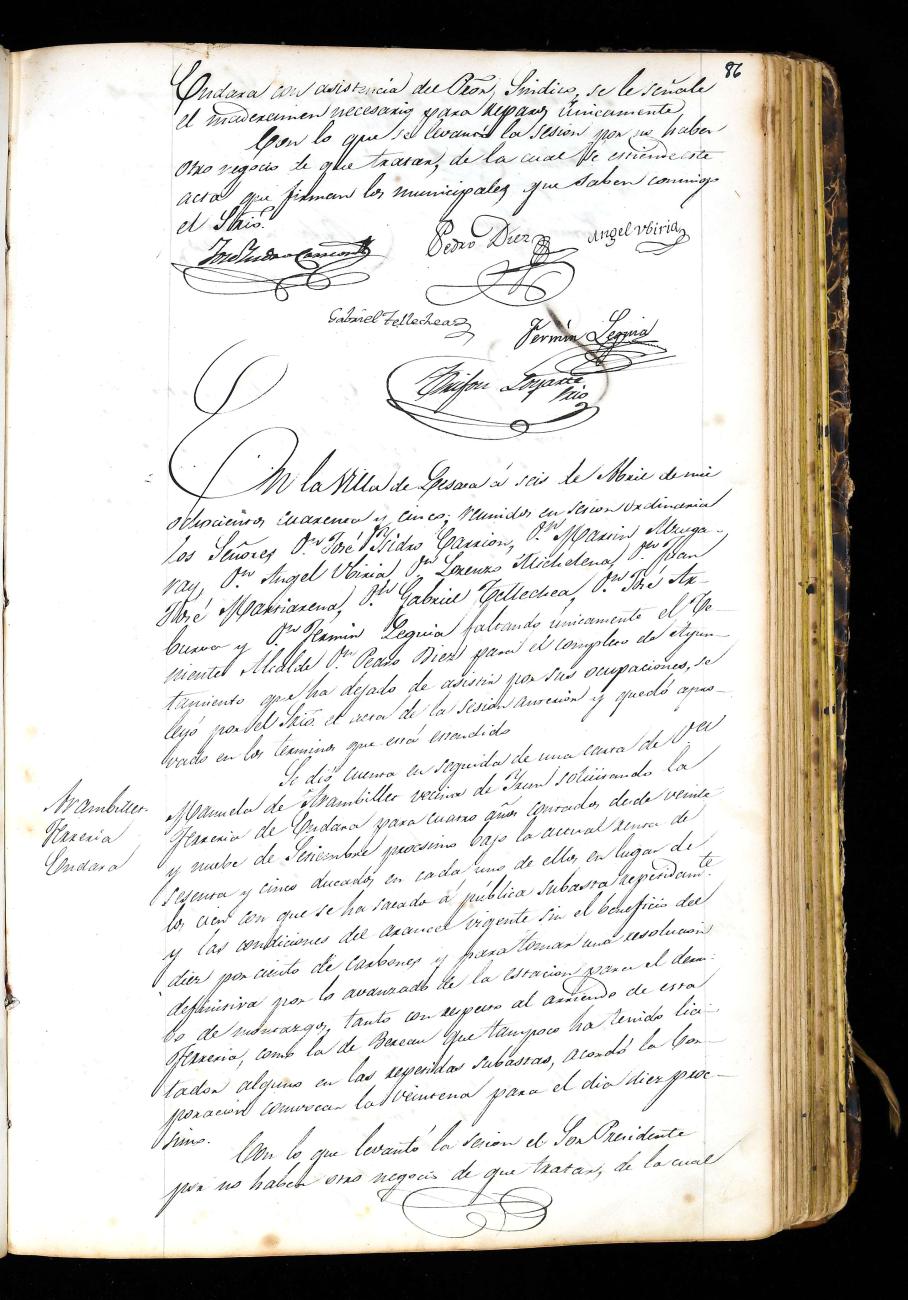 86
Endara con asistencia del Prôr. Sindico, se le señale
el maderamen necesario para reparos unicamente
Con lo que se levantó la sesion por no haber
otro negocio de que tratar, de la cual se estiende este
acta que firman los municipales que saben conmigo
el Srio.
José Ysidro Carrion
Pedro Diez
Angel Ubiria
Gabriel Tellechea
Fermin Leguia
Srio
En la Villa de Lesaca á seis de Abril de mil
ochocientos cuarenta y cinco; reunidos en sesion ordinaria
los Señores Dn. José Ysidro Carrion, Dn. Martin Alzuga-
ray, Dn. Angel Ubiria, Dn. Lorenzo Michelena, Dn. Juan
José Marriarena, Dn. Gabriel Tellechea, Dn. José Ar-
burua y Dn. Fermin Leguia faltando unicamente el Te-
niente Alcalde Dn. Pedro Diez para el completo de Ayun-
tamiento que ha dejado de asistir por sus ocupaciones, se
leyó por el Srio. el acta de la sesion anterior y quedó apro-
vado en los terminos que está estendido
Se dió cuenta en seguida de una carta de
Manuela de Arambillet vecina de Yrun solicitando la
Ferreria de Endara para cuatro años contados desde veinte
y nuebe de Setiembre procsimo bajo la actual renta de
sesenta y cinco ducados en cada uno de ellos en lugar de
los cien con que se ha sacado á pública subasta repetidamte.
y las condiciones del arancel vigente sin el beneficio del
diez por ciento de carbones y para tomar una resolucion
definitiva por lo avanzado de la estacion para el
de montazgo, tanto con respecto al arriendo de esta
Ferreria, como la de Berrau que tampoco ha tenido lici-
tador alguno en las repetidas subastas, acordó la Cor-
poracion convocar la veintena para el dia diez proc-
simo.
Con lo que levantó la sesion el Sor Presidente
por no haber otro negocio de que tratar, de la cual
Arambillet
Ferreria
Endara